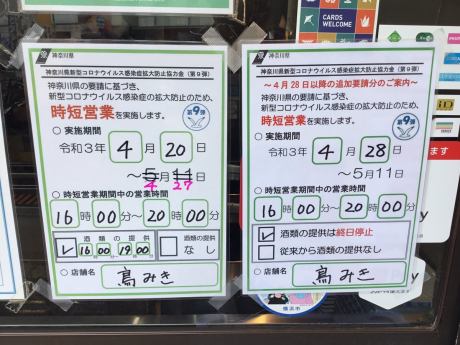 神奈川県
神奈川県新型コロナウイルス感染症拡大防止協力金(第9弾)
神奈川県の要請に基づき、
新型コロナウイルス感染症の拡大防止のため、
時短営業を実施します。
第9弾
○実施期間
令和3年 4月 20日
～5月11日
4 27
○時短営業期間中の営業時間
16時00分～20時00分
酒類の提供
16時00分～19時00分
酒類の提供
なし
○店舗名
鳥みき
神奈川県
神奈川県新型コロナウイルス感染症拡大防止協力金(第9弾)
～4月28日以降の追加要請分のご案内～
神奈川県の要請に基づき、
新型コロナウイルス感染症の拡大防止のため、
時短営業を実施します。
第9弾
○実施期間
令和3年 4月 28日
～5月11日
○時短営業期間中の営業時間
16時00分～20時00分
酒類の提供は終日停止
従来から酒類の提供なし
○店舗名
鳥みき
CARDS
WELCOME
ます
Pay
横浜市